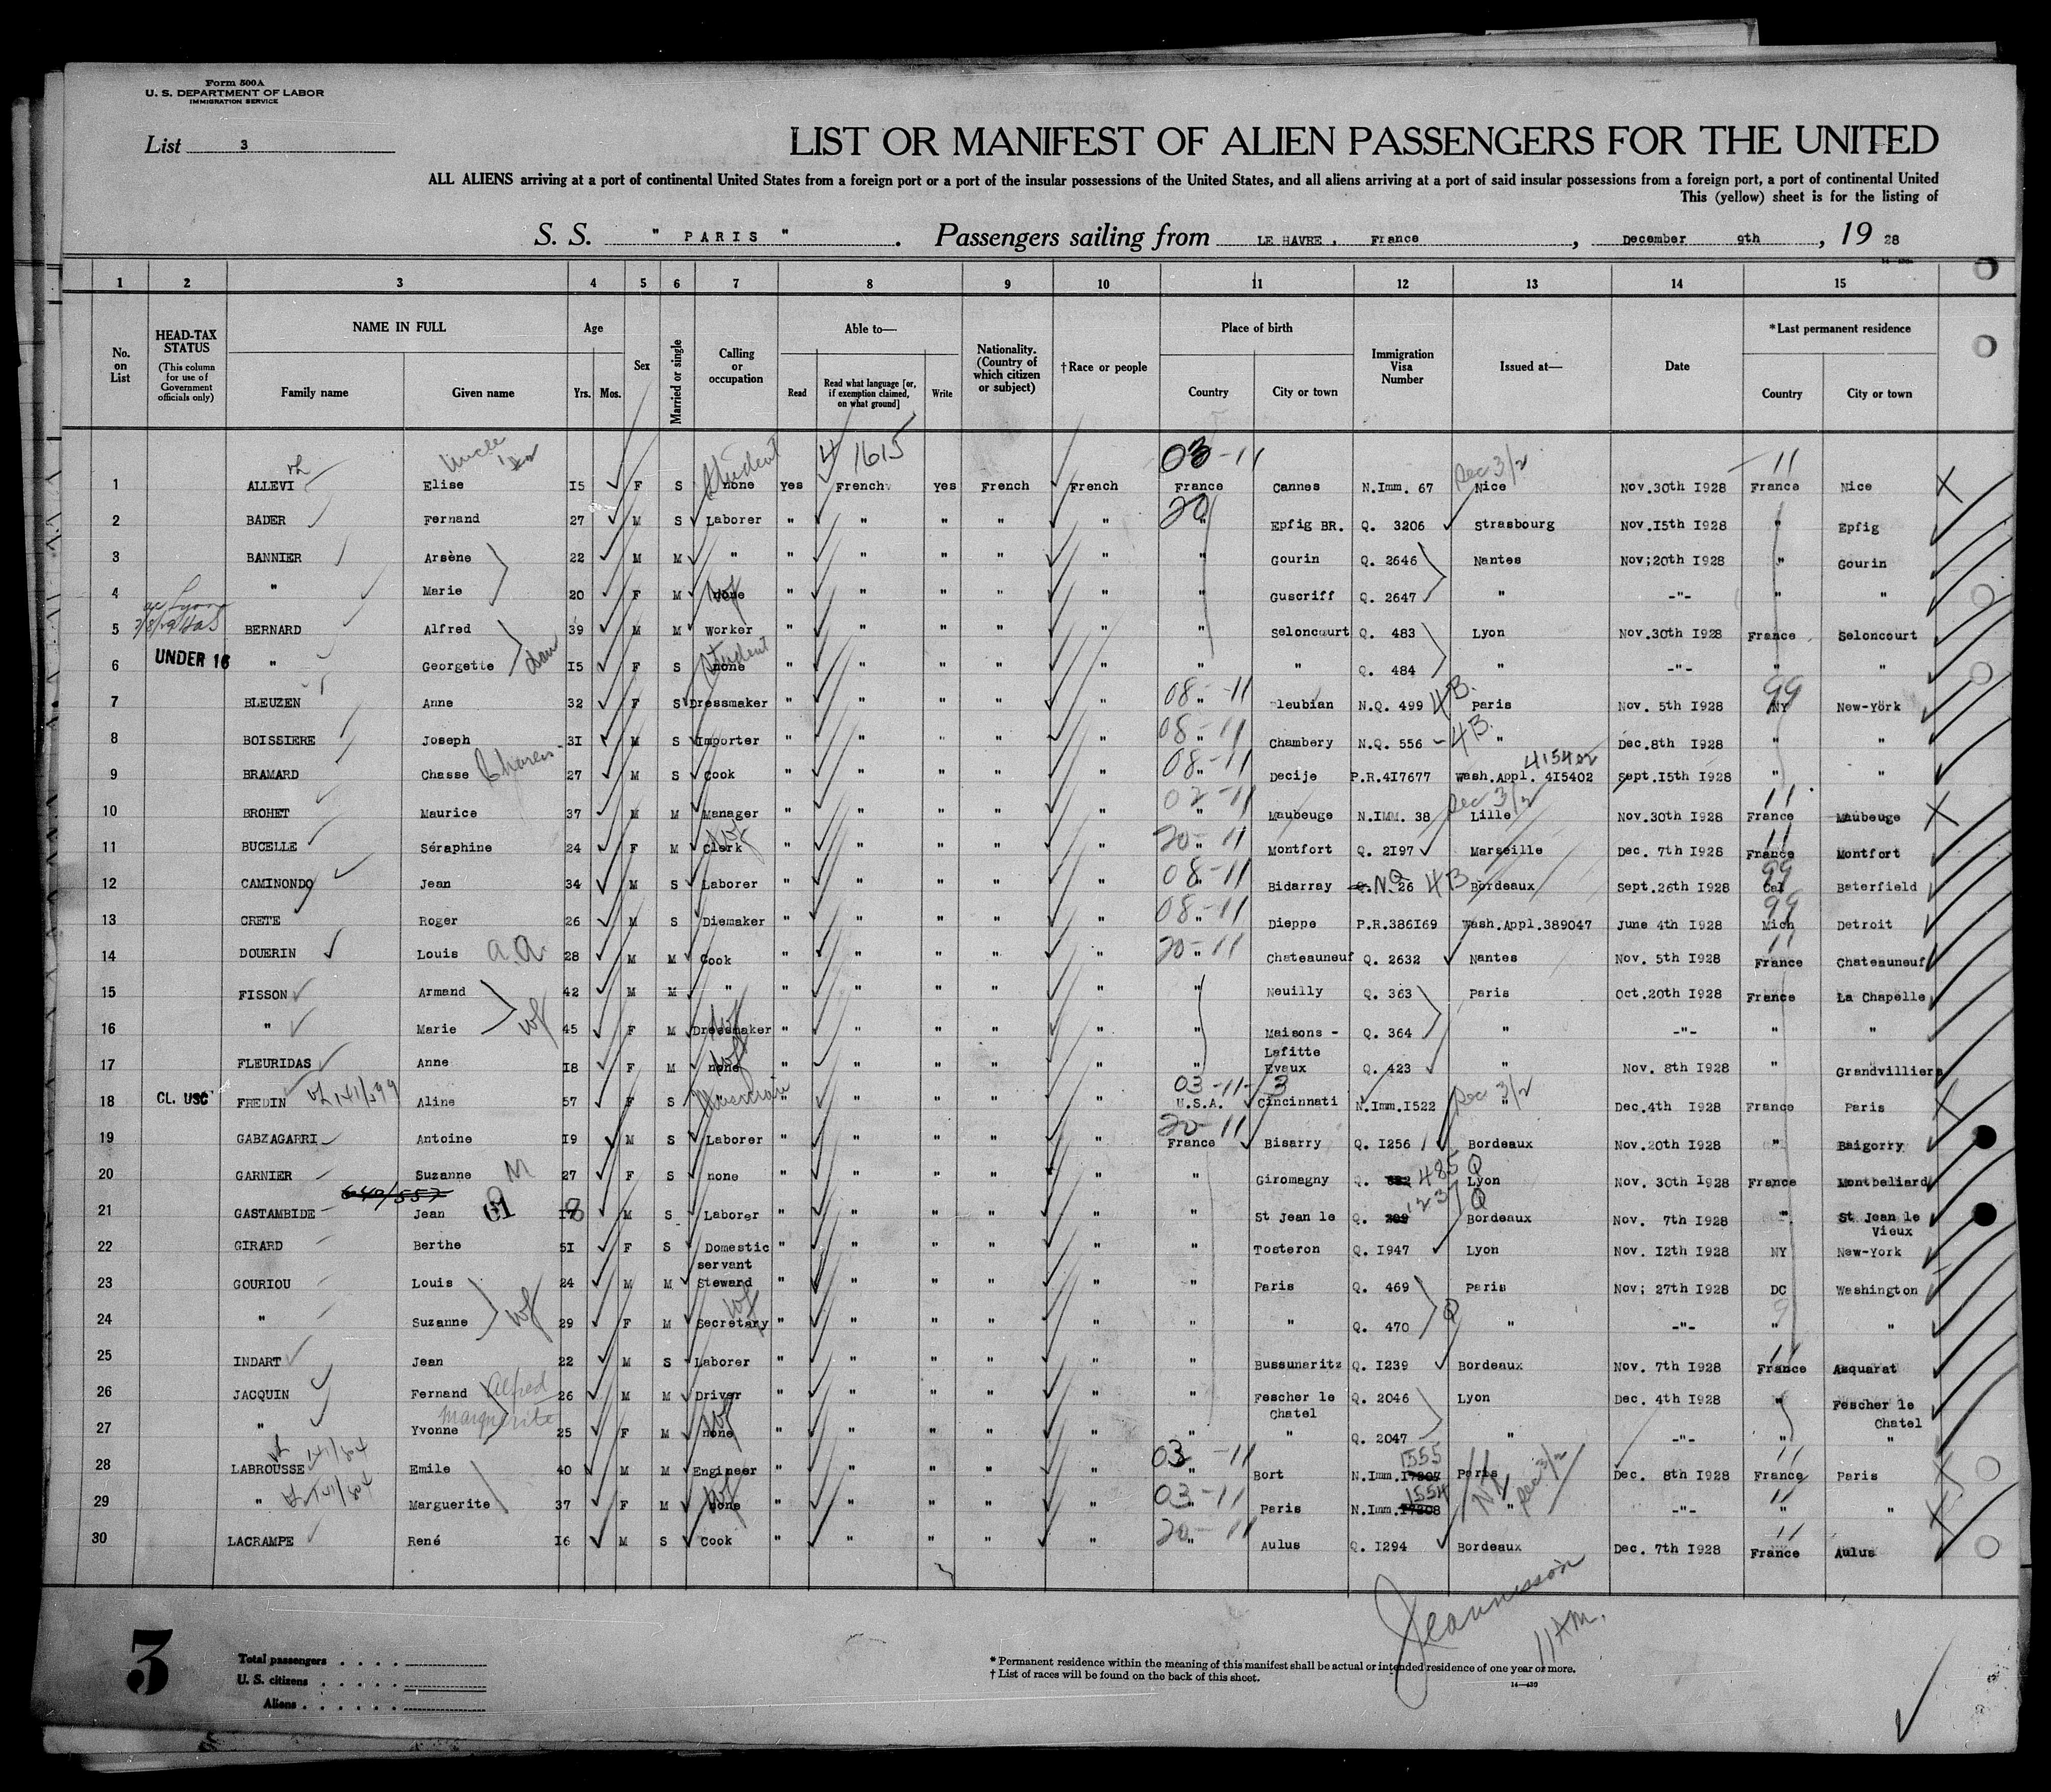 Form 500A
U. S. DEPARTMENT OF LABOR
IMMIGRATION SERVICE
List 3
LIST OR MANIFEST OF ALIEN PASSENGERS FOR THE UNITED
ALL ALIENS arriving at a port of continental United States from a foreign port or a port of the insular possessions of the United States, and all aliens arriving at a port of said insular possessions from a foreign port, a port of continental United
This (yellow) sheet is for the listing of
S. S. " PARIS " . Passengers sailing from LE HAVRE, France , December 9th , 19 28
1 2 3 4 5 6 7 8 9 10 11 12 13 14 15
No. on List
HEAD-TAX STATUS (This column for use of Government officials only)
NAME IN FULL Family name Given name
Age Yrs. Mos.
Sex
Married or single
Calling or occupation
Able to— Read Read what language [or, if exemption claimed, on what ground] Write
Nationality. (Country of which citizen or subject)
†Race or people
Place of birth Country City or town
Immigration Visa Number
Issued at—
Date
*Last permanent residence Country City or town
Uncle Student 4 1615 03-11 Sec 3/2 11
1 ALLEVI Elise 15 F S none Yes French Yes French French France Cannes N.Imm. 67 Nice Nov.30th 1928 France Nice X
20
2 BADER Fernand 27 M S Laborer " " " " " " Epfig BR. Q. 3206 Strasbourg Nov.15th 1928 " Epfig
3 BANNIER Arsène 22 M M " " " " " " " Gourin Q. 2646 Nantes Nov;20th 1928 " Gourin
4 " Marie 20 F M none wf " " " " " " Guscriff Q. 2647 " -"- " "
5 BERNARD Alfred 39 M M Worker " " " " " " Seloncourt Q. 483 Lyon Nov.30th 1928 France Seloncourt
6 UNDER 16 " Georgette dau 15 F S none Student " " " " " " " Q. 484 " -"- " "
08-11 4B. 99
7 BLEUZEN Anne 32 F S Dressmaker " " " " " " Pleubian N.Q. 499 Paris Nov. 5th 1928 NY New-York
08-11 4B.
8 BOISSIERE Joseph 31 M S Importer " " " " " " Chambery N.Q. 556 " Dec.8th 1928 " "
08-11 415402
9 BRAMARD Chasse 27 M S Cook " " " " " " Decije P.R.417677 Wash.Appl. 415402 Sept.15th 1928 " "
02-11 Sec 3/2 11
10 BROHET Maurice 37 M M Manager " " " " " " Maubeuge N.IMM. 38 Lille Nov.30th 1928 France Maubeuge X
20-11 11
11 BUCELLE Séraphine 24 F M Clerk wf " " " " " " Montfort Q. 2197 Marseille Dec. 7th 1928 France Montfort
08-11 99
12 CAMINONDO Jean 34 M S Laborer " " " " " " Bidarray N.Q. 26 4B Bordeaux Sept.26th 1928 Cal Baterfield
08-11 99
13 CRETE Roger 26 M S Diemaker " " " " " " Dieppe P.R.386169 Wash.Appl.389047 June 4th 1928 Mich Detroit
20-11 11
14 DOUERIN Louis a.a. 28 M M Cook " " " " " " Chateauneuf Q. 2632 Nantes Nov. 5th 1928 France Chateauneuf
15 FISSON Armand 42 M M " " " " " " " Neuilly Q. 363 Paris Oct.20th 1928 France La Chapelle
16 " Marie wf 45 F M Dressmaker wf " " " " " " Maisons - Lafitte Q. 364 " -"- " "
17 FLEURIDAS Anne 18 F M none wf " " " " " " Evaux Q. 423 " Nov. 8th 1928 " Grandvilliers
03-11-3 Sec 3/2
18 CL. USC FREDIN 141/399 Aline 57 F S " " " " " " U.S.A. Cincinnati N.Imm.1522 " Dec.4th 1928 France Paris X
20-11
19 GABZAGARRI Antoine 19 M S Laborer " " " " " " France Bisarry Q. 1256 Bordeaux Nov.20th 1928 " Baigorry
20 GARNIER Suzanne M 27 F S none " " " " " " Giromagny Q. 485 Q Lyon Nov. 30th 1928 France Montbeliard
640/557
21 GASTAMBIDE Jean 18 M S Laborer " " " " " " St Jean le Q. 1237 Q Bordeaux Nov. 7th 1928 " St Jean le Vieux
22 GIRARD Berthe 51 F S Domestic servant " " " " " " Tosteron Q. 1947 Lyon Nov. 12th 1928 NY New-York
23 GOURIOU Louis 24 M M Steward " " " " " " Paris Q. 469 Paris Nov; 27th 1928 DC Washington
24 " Suzanne wf 29 F M Secretary wf " " " " " " " Q. 470 Q " -"- " "
25 INDART Jean 22 M S Laborer " " " " " " Bussunaritz Q. 1239 Bordeaux Nov. 7th 1928 France Asquarat
26 JACQUIN Fernand Alfred 26 M M Driver " " " " " " Fescher le Chatel Q. 2046 Lyon Dec. 4th 1928 " Fescher le Chatel
27 " Yvonne Marguerite 25 F M none wf " " " " " " " Q. 2047 " -"- " "
03-11 1555 11
28 LABROUSSE 141/804 Emile 40 M M Engineer " " " " " " Bort N.Imm.17307 Paris Sec 3/2 Dec. 8th 1928 France Paris X
03-11 1554 11
29 " 141/804 Marguerite 37 F M none wf " " " " " " Paris N.Imm.17308 " -"- " " X
20-11 11
30 LACRAMPE René 16 M S Cook " " " " " " Aulus Q. 1294 Bordeaux Dec. 7th 1928 France Aulus
Jeannisson
11 AM.
3
Total passengers . . . .
U. S. citizens . . . . .
Aliens . . . . . .
* Permanent residence within the meaning of this manifest shall be actual or intended residence of one year or more.
† List of races will be found on the back of this sheet.
14—430